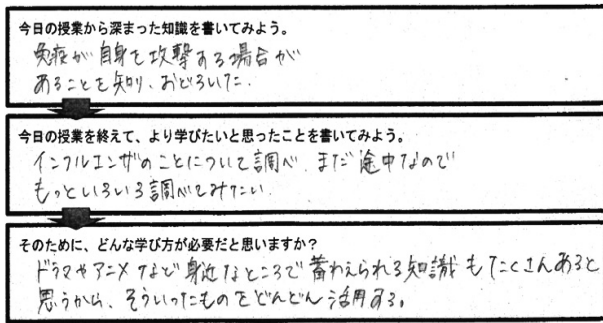 今日の授業から深まった知識を書いてみよう。
免疫が自身を攻撃する場合が
あることを知り、おどろいた.
今日の授業を終えて、より学びたいと思ったことを書いてみよう。
インフルエンザのことについて調べ、まだ途中なので
もっといろいろ調べてみたい.
そのために、どんな学び方が必要だと思いますか？
ドラマやアニメなど身近なところで蓄わえられる知識もたくさんあると
思うから、そういったものをどんどん活用する。